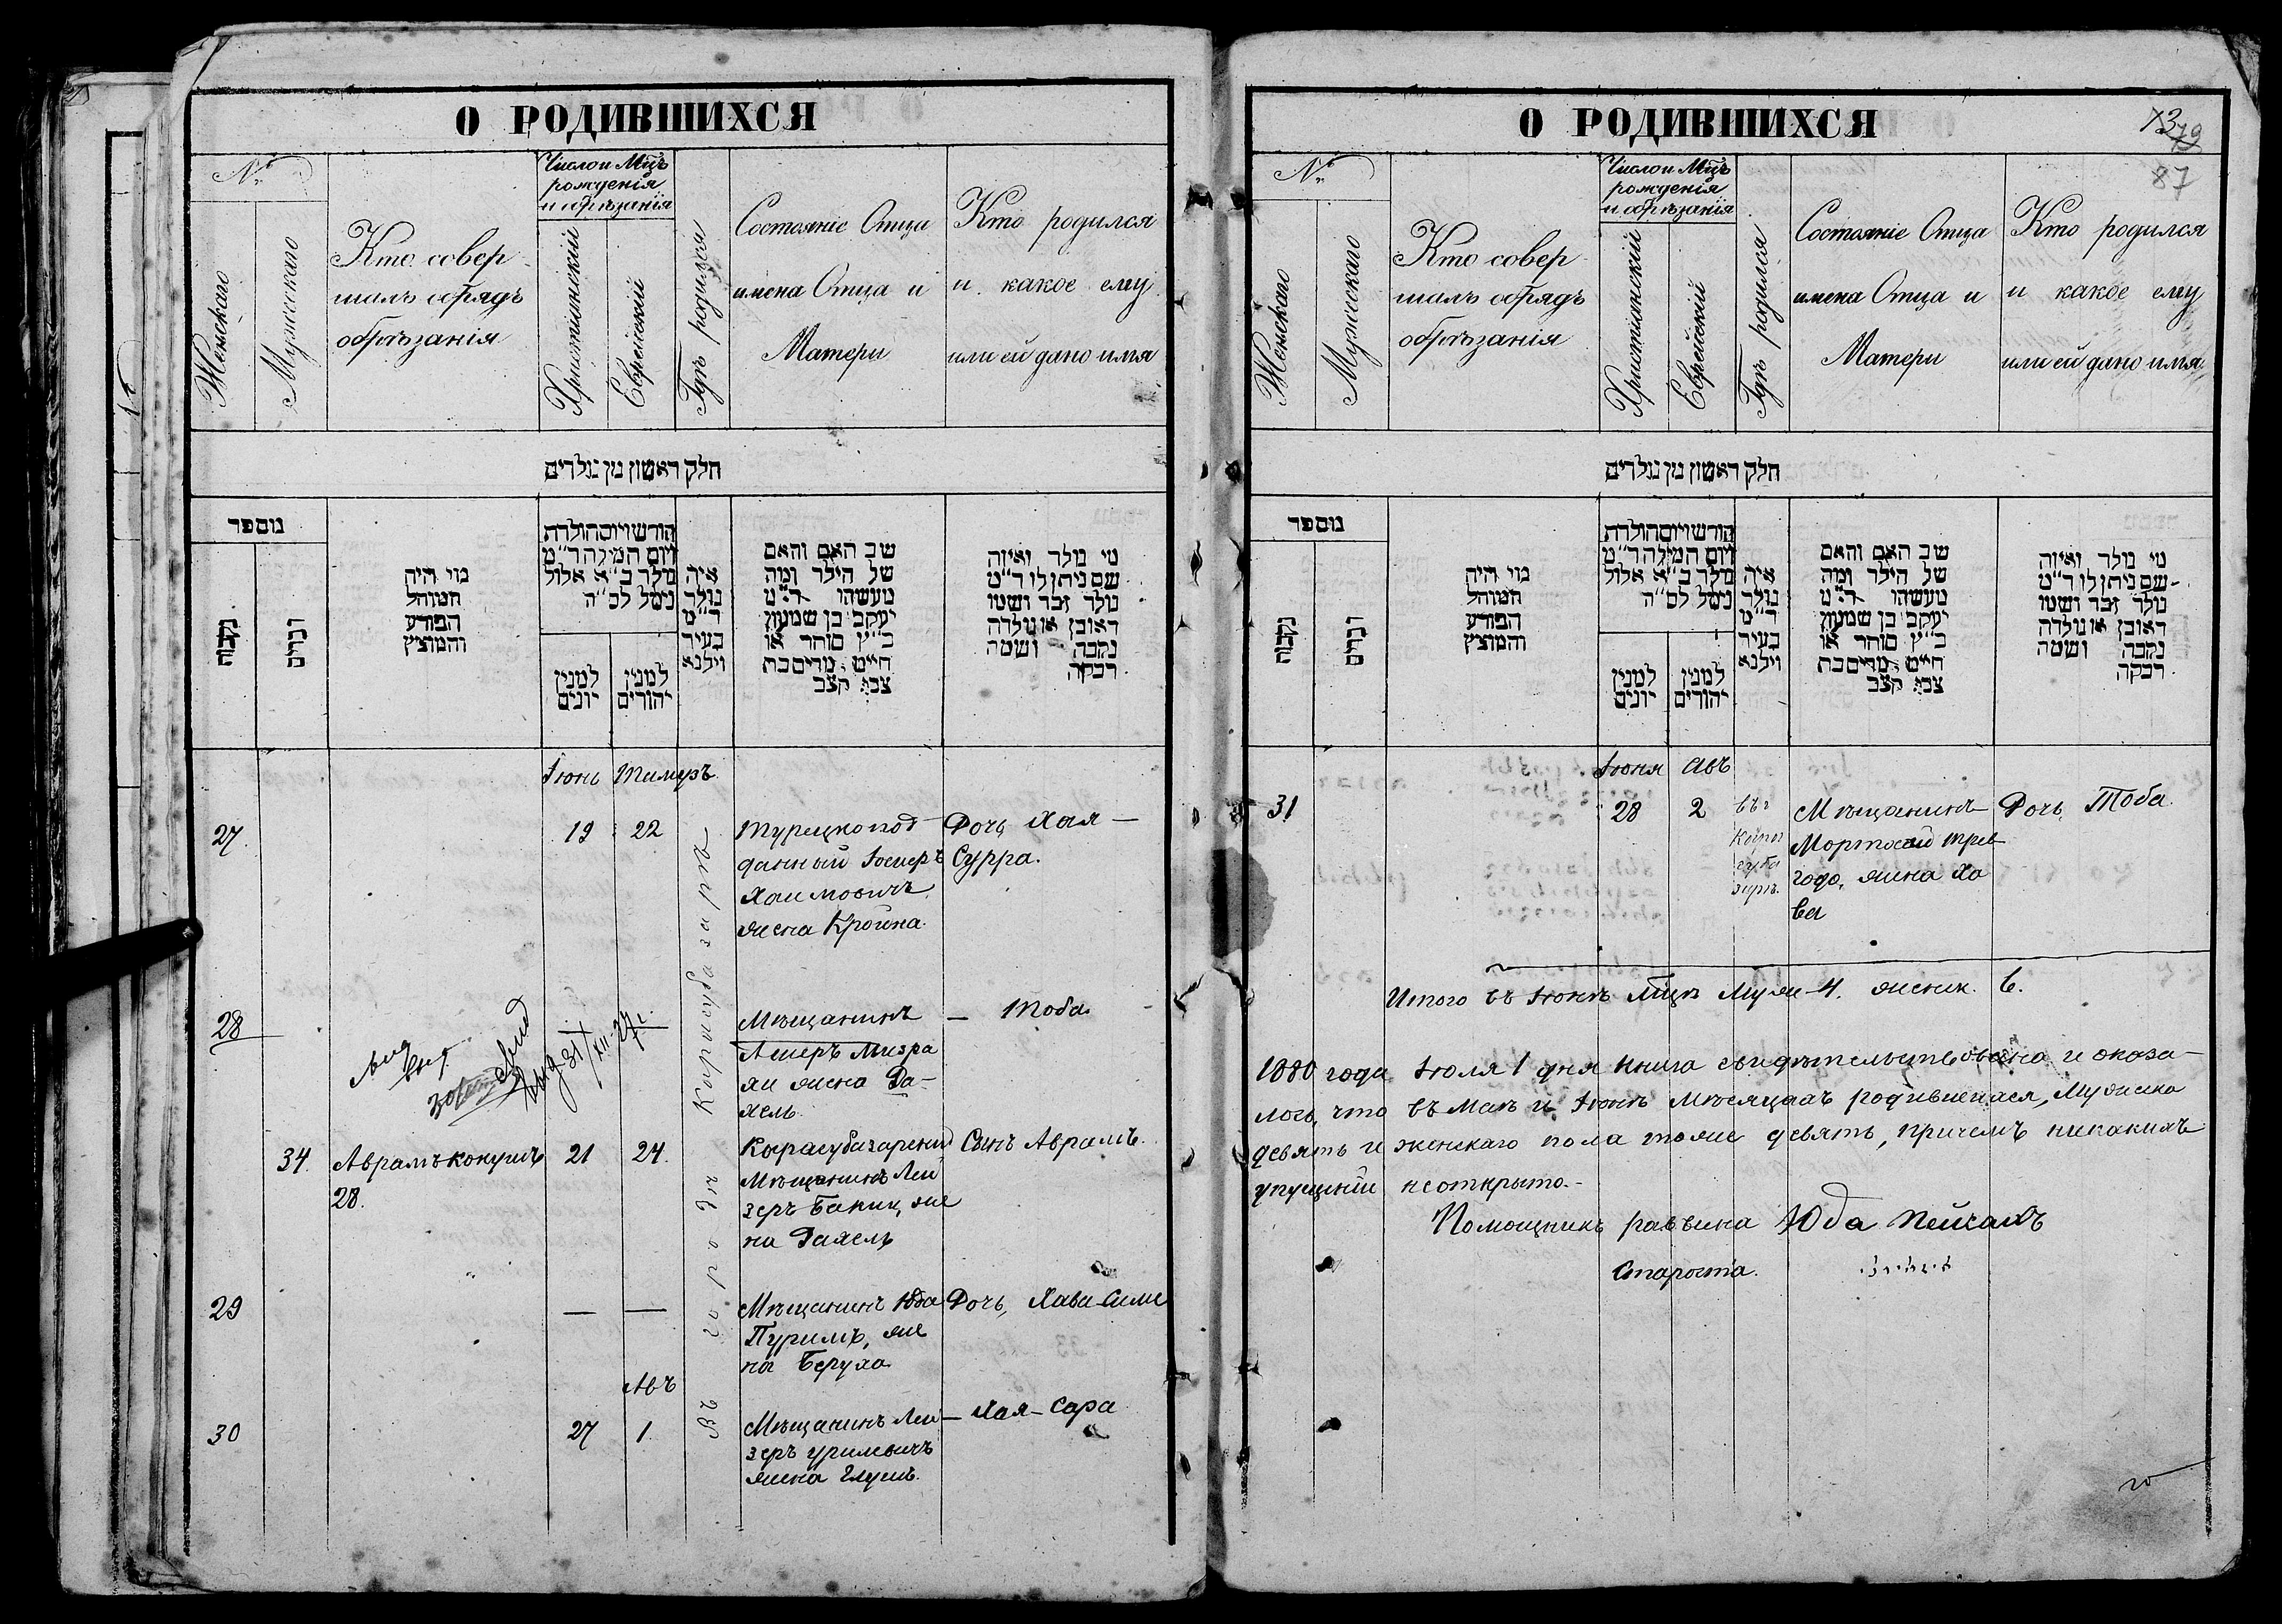 О РОДИВШИХСЯ
№
Женскаго
Мужескаго
Кто совер
шалъ обрядъ
обрѣзанія
Число и Мцъ
рожденія
и обрѣзанія
Христіянскій
Еврейскій
Гдѣ родился
Состояніе Отца
имена Отца и
Матери
Кто родился
и какое ему
или ей дано имя
חלק ראשון מן נולדים
מספר
נקבות
זכרים
מי היה
המוהל
הפורע
והמוצץ
חורש ויום הולדת
ויום המילה ד"מ
נולד ב"א אלול
נימל לס"ה
למנין
יונים
למנין
יהודים
איה
נולד
ד"מ
בעיר
וילנא
שם האם והאם
של הילד ומה
מעשהו ד"מ
יעקב בן שמעון
כ"ץ סוחר או
חייט מרים בת
צבי קצב
מי נולד ואיזה
שם ניתן לו ד"מ
נולד זכר ושמו
ראובן או נולדה
נקבה ושמה
רבקה
Іюнь Тамузъ
27. 19 22 Турецкопод Дочь Хая —
данный Іосифъ Сурра.
Хаимовичъ
жена Кройна.
28 Мѣщанинъ — Тоба
Ашеръ Мизра
хи жена Ра-
хель
34. Аврамъ кокушъ 21 24. Карасубазарский Сынъ Аврамъ.
28. Мѣщанинъ Лей
зеръ Бакши, же
на Рахель
29 — — Мѣщанинъ Юда Дочь, Хава-Сима
Пуримъ, же
на Беруха
Авъ
30 27 1 Мѣщанинъ Лей — Хая-Сара
зеръ Уриловичъ
жена Глушъ.
Въ городѣ Карасубазарѣ
О РОДИВШИХСЯ
79
87
№
Женскаго
Мужескаго
Кто совер
шалъ обрядъ
обрѣзанія
Число и Мцъ
рожденія
и обрѣзанія
Христіянскій
Еврейскій
Гдѣ родился
Состояніе Отца
имена Отца и
Матери
Кто родился
и какое ему
или ей дано имя
חלק ראשון מן נולדים
מספר
נקבות
זכרים
מי היה
המוהל
הפורע
והמוצץ
חורש ויום הולדת
ויום המילה ד"מ
נולד ב"א אלול
נימל לס"ה
למנין
יונים
למנין
יהודים
איה
נולד
ד"מ
בעיר
וילנא
שם האם והאם
של הילד ומה
מעשהו ד"מ
יעקב בן שמעון
כ"ץ סוחר או
חייט מרים בת
צבי קצב
מי נולד ואיזה
שם ניתן לו ד"מ
נולד זכר ושמו
ראובן או נולדה
נקבה ושמה
רבקה
Іюня Авъ
31 28 2 Мѣщанинъ Дочь, Тоба.
Мортхай Трев
года, жена Ха
ва
Итого въ Іюнѣ мцѣ муж-4. женск. 6.
1880 года Іюля 1 дня книга свидѣтельствована и оказа-
лось, что въ Маѣ и Іюнѣ мѣсяцахъ родившихся, мужска
девять и женскаго пола тоже девять, причемъ никакихъ
упущеній не открыто.-
Помощникъ раввина Юда Пейсахъ
Староста.